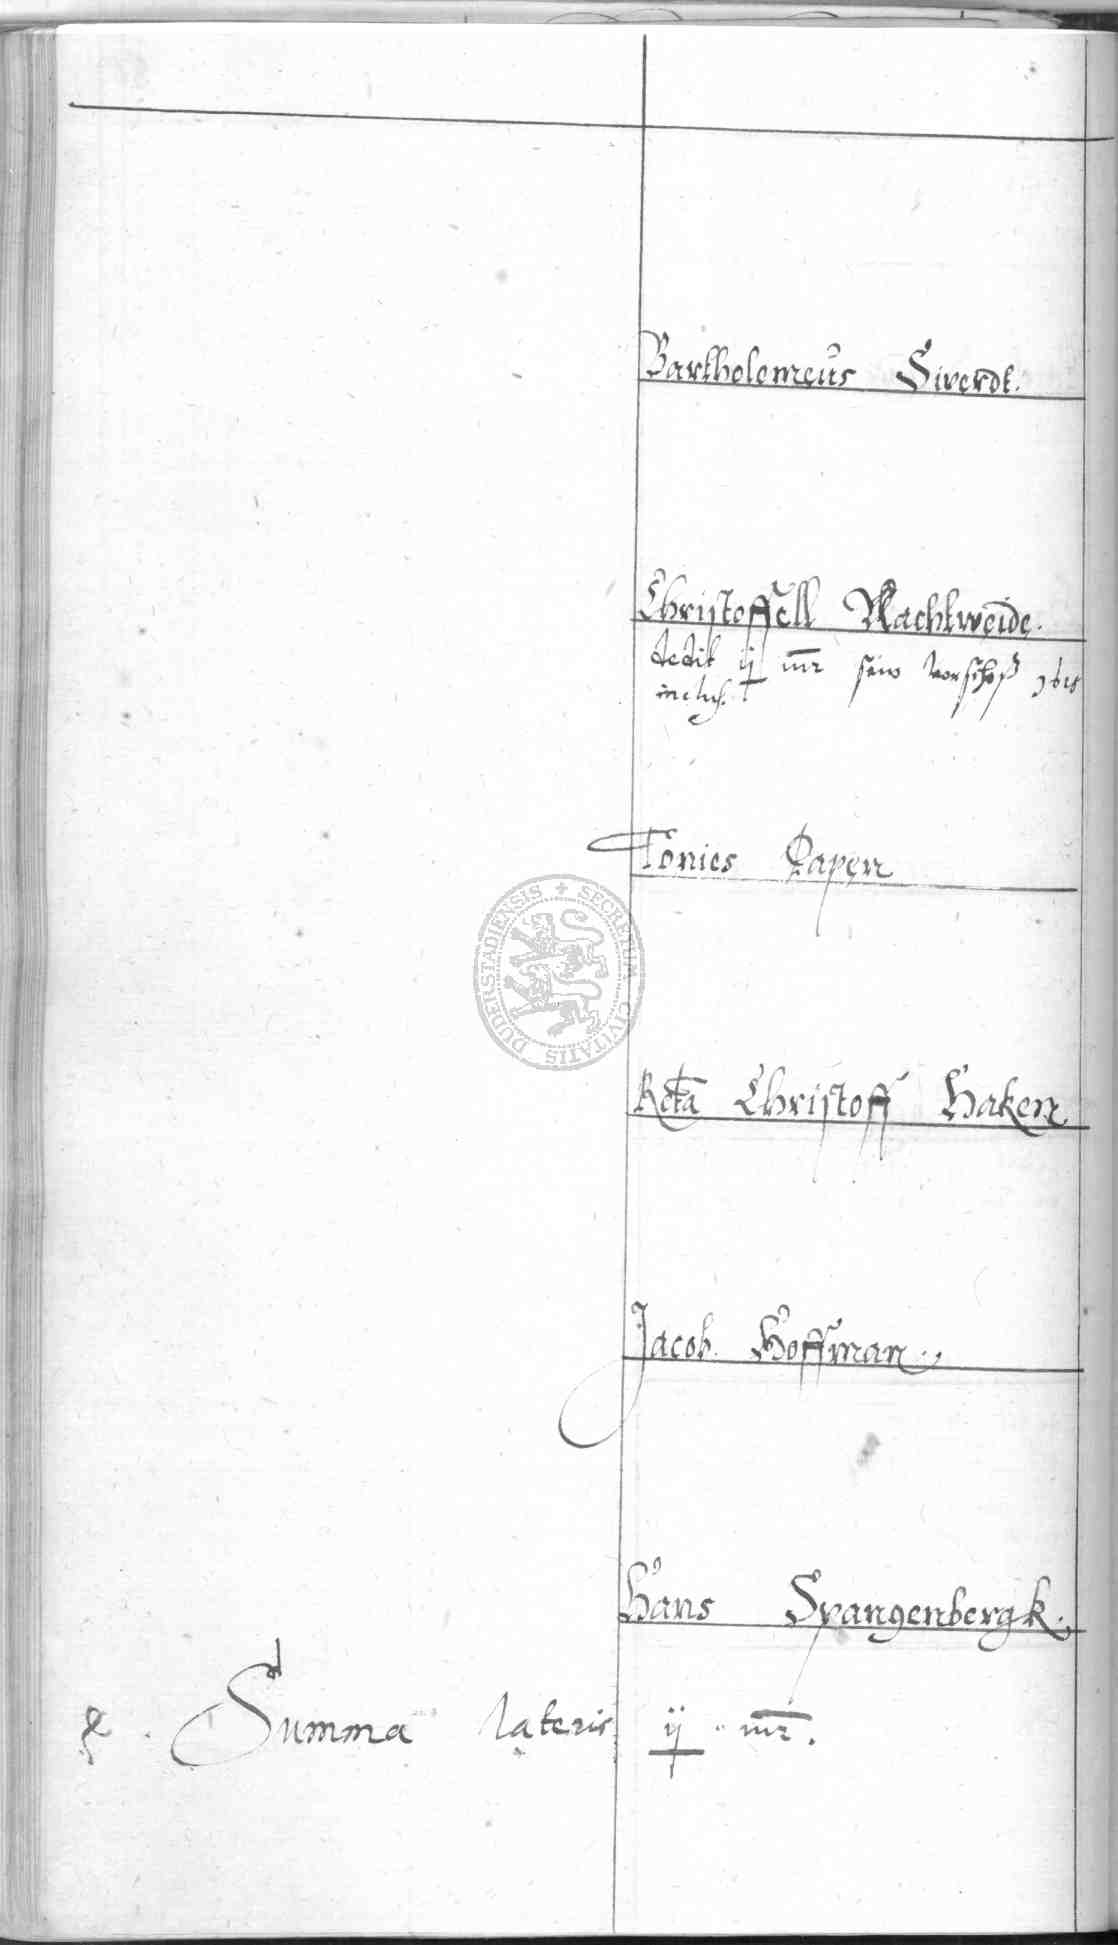 Bartholomeus Siverdt.
Christoffell Nachtweide.
dedit ij mr sein vorschoß
inclus.
Tonies Papen
Rcta Christoff Haken
Jacob Hoffman
Hans Spangenbergk.
Summa lateris ij mr.
SECRETUM CIVITATIS DUDERSTADIENSIS